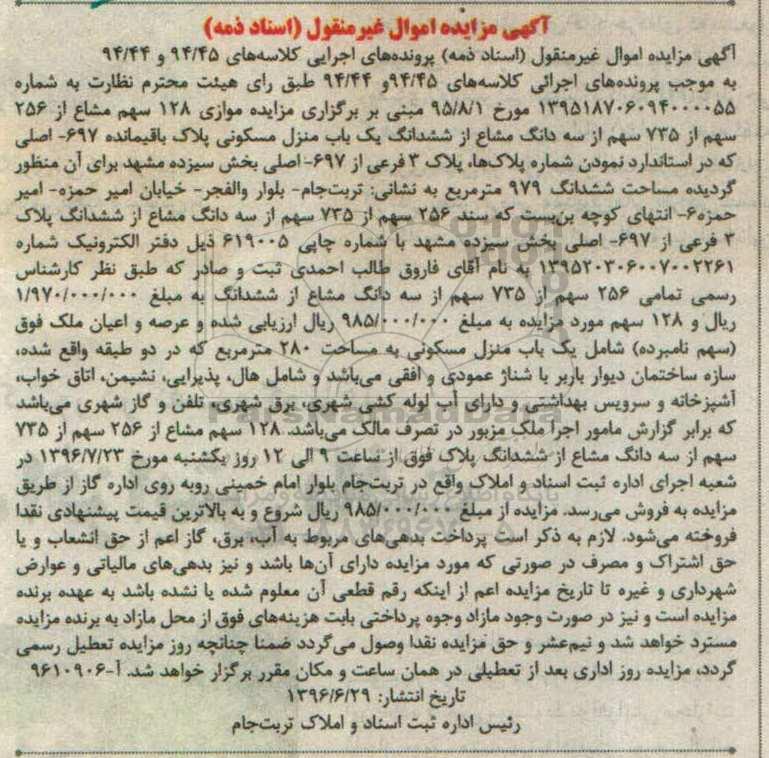 آگهی مزایده اموال غیرمنقول (اسناد ذمه)
آگهی مزایده اموال غیرمنقول (اسناد ذمه) پرونده‌های اجرایی کلاسه‌های ۹۴/۴۵ و ۹۴/۴۴
به موجب پرونده‌های اجرائی کلاسه‌های ۹۴/۴۵و ۹۴/۴۴ طبق رای هیئت محترم نظارت به شماره
۱۳۹۵۱۸۷۰۶۰۹۴۰۰۰۰۵۵ مورخ ۹۵/۸/۱ مبنی بر برگزاری مزایده موازی ۱۲۸ سهم مشاع از ۲۵۶
سهم از ۷۳۵ سهم از سه دانگ مشاع از ششدانگ یک باب منزل مسکونی پلاک باقیمانده ۶۹۷- اصلی
که در استاندارد نمودن شماره پلاک‌ها، پلاک ۳ فرعی از ۶۹۷-اصلی بخش سیزده مشهد برای آن منظور
گردیده مساحت ششدانگ ۹۷۹ مترمربع به نشانی: تربت‌جام- بلوار والفجر- خیابان امیر حمزه- امیر
حمزه۶- انتهای کوچه بن‌بست که سند ۲۵۶ سهم از ۷۳۵ سهم از سه دانگ مشاع از ششدانگ پلاک
۳ فرعی از ۶۹۷- اصلی بخش سیزده مشهد با شماره چاپی ۶۱۹۰۰۵ ذیل دفتر الکترونیک شماره
۱۳۹۵۲۰۳۰۶۰۰۷۰۰۲۲۶۱ به نام آقای فاروق طالب احمدی ثبت و صادر که طبق نظر کارشناس
رسمی تمامی ۲۵۶ سهم از ۷۳۵ سهم از سه دانگ مشاع از ششدانگ به مبلغ ۱/۹۷۰/۰۰۰/۰۰۰
ریال و ۱۲۸ سهم مورد مزایده به مبلغ ۹۸۵/۰۰۰/۰۰۰ ریال ارزیابی شده و عرصه و اعیان ملک فوق
(سهم نامبرده) شامل یک باب منزل مسکونی به مساحت ۲۸۰ مترمربع که در دو طبقه واقع شده،
سازه ساختمان دیوار باربر با شناژ عمودی و افقی می‌باشد و شامل هال، پذیرایی، نشیمن، اتاق خواب،
آشپزخانه و سرویس بهداشتی و دارای آب لوله کشی شهری، برق شهری، تلفن و گاز شهری می‌باشد
که برابر گزارش مامور اجرا ملک مزبور در تصرف مالک می‌باشد. ۱۲۸ سهم مشاع از ۲۵۶ سهم از ۷۳۵
سهم از سه دانگ مشاع از ششدانگ پلاک فوق از ساعت ۹ الی ۱۲ روز یکشنبه مورخ ۱۳۹۶/۷/۲۳ در
شعبه اجرای اداره ثبت اسناد و املاک واقع در تربت‌جام بلوار امام خمینی روبه روی اداره گاز از طریق
مزایده به فروش می‌رسد. مزایده از مبلغ ۹۸۵/۰۰۰/۰۰۰ ریال شروع و به بالاترین قیمت پیشنهادی نقدا
فروخته می‌شود. لازم به ذکر است پرداخت بدهی‌های مربوط به آب، برق، گاز اعم از حق انشعاب و یا
حق اشتراک و مصرف در صورتی که مورد مزایده دارای آن‌ها باشد و نیز بدهی‌های مالیاتی و عوارض
شهرداری و غیره تا تاریخ مزایده اعم از اینکه رقم قطعی آن معلوم شده یا نشده باشد به عهده برنده
مزایده است و نیز در صورت وجود مازاد وجوه پرداختی بابت هزینه‌های فوق از محل مازاد به برنده مزایده
مسترد خواهد شد و نیم‌عشر و حق مزایده نقدا وصول می‌گردد ضمنا چنانچه روز مزایده تعطیل رسمی
گردد، مزایده روز اداری بعد از تعطیلی در همان ساعت و مکان مقرر برگزار خواهد شد. آ-۹۶۱۰۹۰۶
تاریخ انتشار: ۱۳۹۶/۶/۲۹
رئیس اداره ثبت اسناد و املاک تربت‌جام